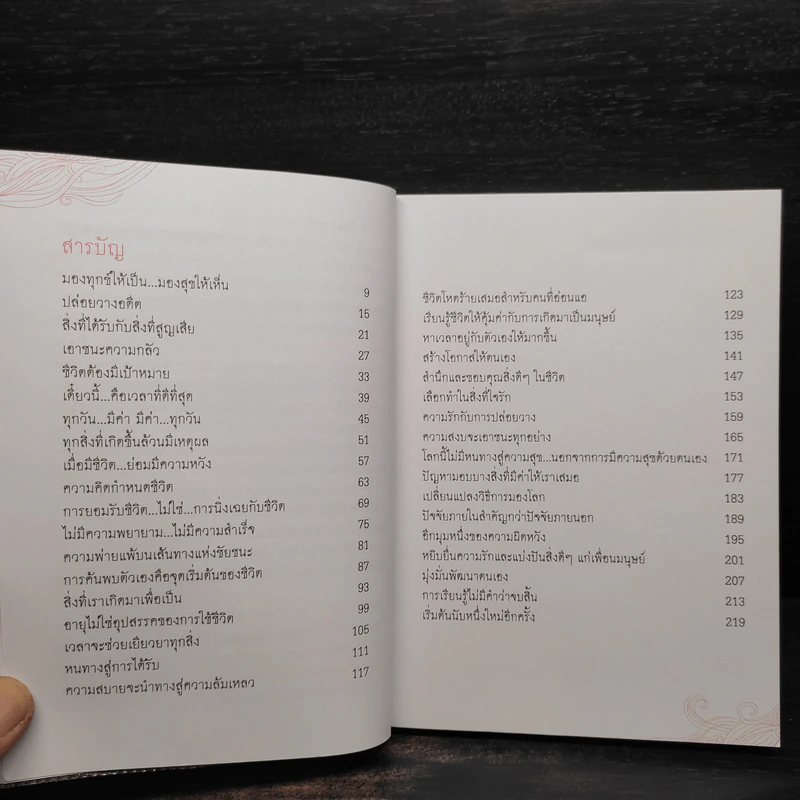 สารบัญ
มองทุกข์ให้เป็น...มองสุขให้เห็น 9
ปล่อยวางอดีต 15
สิ่งที่ได้รับกับสิ่งที่สูญเสีย 21
เอาชนะความกลัว 27
ชีวิตต้องมีเป้าหมาย 33
เดี๋ยวนี้...คือเวลาที่ดีที่สุด 39
ทุกวัน...มีค่า มีค่า...ทุกวัน 45
ทุกสิ่งที่เกิดขึ้นล้วนมีเหตุผล 51
เมื่อมีชีวิต...ย่อมมีความหวัง 57
ความคิดกำหนดชีวิต 63
การยอมรับชีวิต...ไม่ใช่...การนิ่งเฉยกับชีวิต 69
ไม่มีความพยายาม...ไม่มีความสำเร็จ 75
ความพ่ายแพ้บนเส้นทางแห่งชัยชนะ 81
การค้นพบตัวเองคือจุดเริ่มต้นของชีวิต 87
สิ่งที่เราเกิดมาเพื่อเป็น 93
อายุไม่ใช่อุปสรรคของการใช้ชีวิต 99
เวลาจะช่วยเยียวยาทุกสิ่ง 105
หนทางสู่การได้รับ 111
ความสบายจะนำทางสู่ความล้มเหลว 117
ชีวิตโหดร้ายเสมอสำหรับคนที่อ่อนแอ 123
เรียนรู้ชีวิตให้คุ้มค่ากับการเกิดมาเป็นมนุษย์ 129
หาเวลาอยู่กับตัวเองให้มากขึ้น 135
สร้างโอกาสให้ตนเอง 141
สำนึกและขอบคุณสิ่งดีๆ ในชีวิต 147
เลือกทำในสิ่งที่ใจรัก 153
ความรักกับการปล่อยวาง 159
ความสงบจะเอาชนะทุกอย่าง 165
โลกนี้ไม่มีหนทางสู่ความสุข...นอกจากการมีความสุขด้วยตนเอง 171
ปัญหามอบบางสิ่งที่มีค่าให้เราเสมอ 177
เปลี่ยนแปลงวิธีการมองโลก 183
ปัจจัยภายในสำคัญกว่าปัจจัยภายนอก 189
อีกมุมหนึ่งของความผิดหวัง 195
หยิบยื่นความรักและแบ่งปันสิ่งดีๆ แก่เพื่อนมนุษย์ 201
มุ่งมั่นพัฒนาตนเอง 207
การเรียนรู้ไม่มีคำว่าจบสิ้น 213
เริ่มต้นนับหนึ่งใหม่อีกครั้ง 219